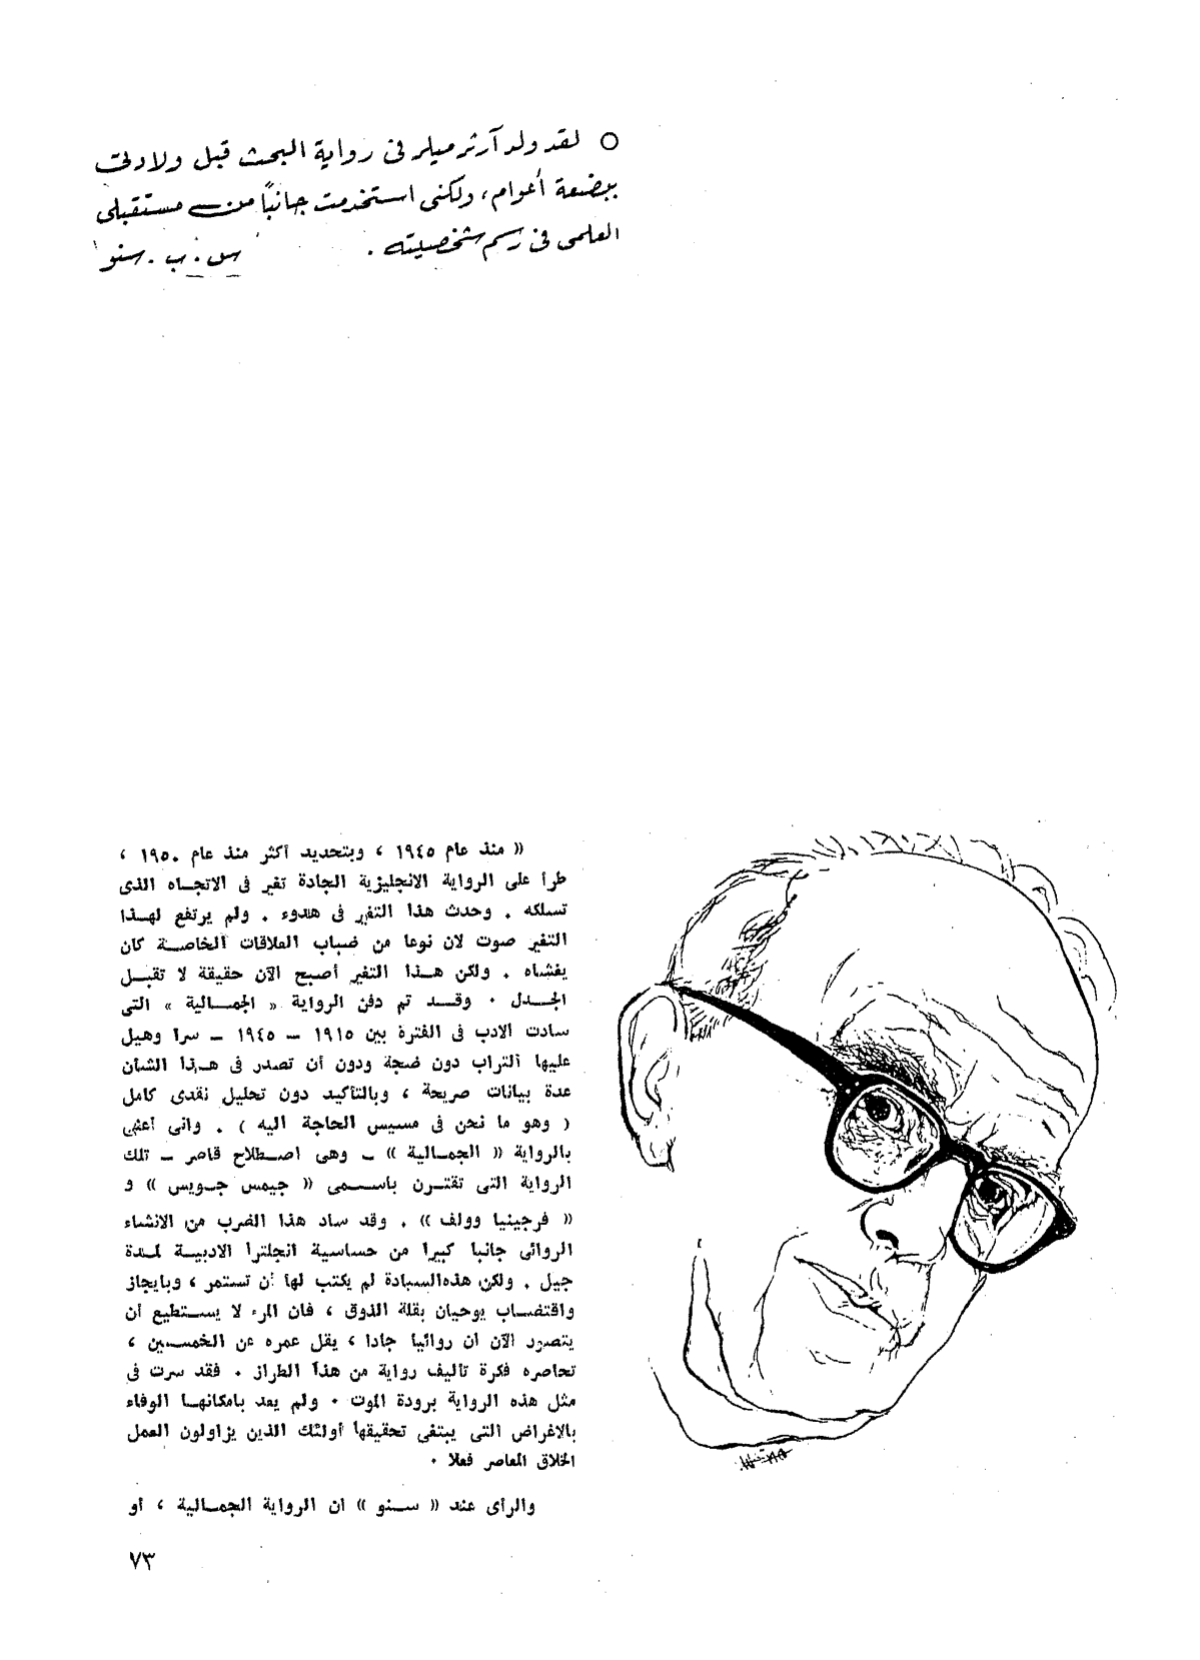 ○ لقد ولد آرثر ميلر فى رواية البحث قبل ولادتى
ببضعة أعوام، ولكنى استخدمت جانباً من مستقبلى
العلمى فى رسم شخصيته .
س . ب . سنو
« منذ عام ١٩٤٥ ، وبتحديد أكثر منذ عام ١٩٥٠ ،
طرأ على الرواية الانجليزية الجادة تغير فى الاتجاه الذى
تسلكه . وحدث هذا التغير فى هدوء . ولم يرتفع لهذا
التغير صوت لان نوعا من ضباب العلاقات الخاصة كان
يغشاه . ولكن هذا التغير أصبح الآن حقيقة لا تقبل
الجدل . وقد تم دفن الرواية « الجمالية » التى
سادت الادب فى الفترة بين ١٩١٥ - ١٩٤٥ - سرا وهيل
عليها التراب دون ضجة ودون أن تصدر فى هذا الشأن
عدة بيانات صريحة ، وبالتأكيد دون تحليل نقدى كامل
( وهو ما نحن فى مسيس الحاجة اليه ) . وانى أعنى
بالرواية « الجمالية » - وهى اصطلاح قاصر - تلك
الرواية التى تقترن باسمى « جيمس جويس » و
« فرجينيا وولف » . وقد ساد هذا الضرب من الانشاء
الروائى جانبا كبيرا من حساسية انجلترا الادبية لمدة
جيل . ولكن هذه السيادة لم يكتب لها أن تستمر ، وبايجاز
واقتضاب يوحيان بقلة الذوق ، فان المرء لا يستطيع أن
يتصور الآن ان روائيا جادا ، يقل عمره عن الخمسين ،
تحاصره فكرة تأليف رواية من هذا الطراز . فقد سرت فى
مثل هذه الرواية برودة الموت . ولم يعد بامكانها الوفاء
بالاغراض التى يبتغى تحقيقها أولئك الذين يزاولون العمل
الخلاق المعاصر فعلا .
والرأى عند « سنو » ان الرواية الجمالية ، أو
٧٣